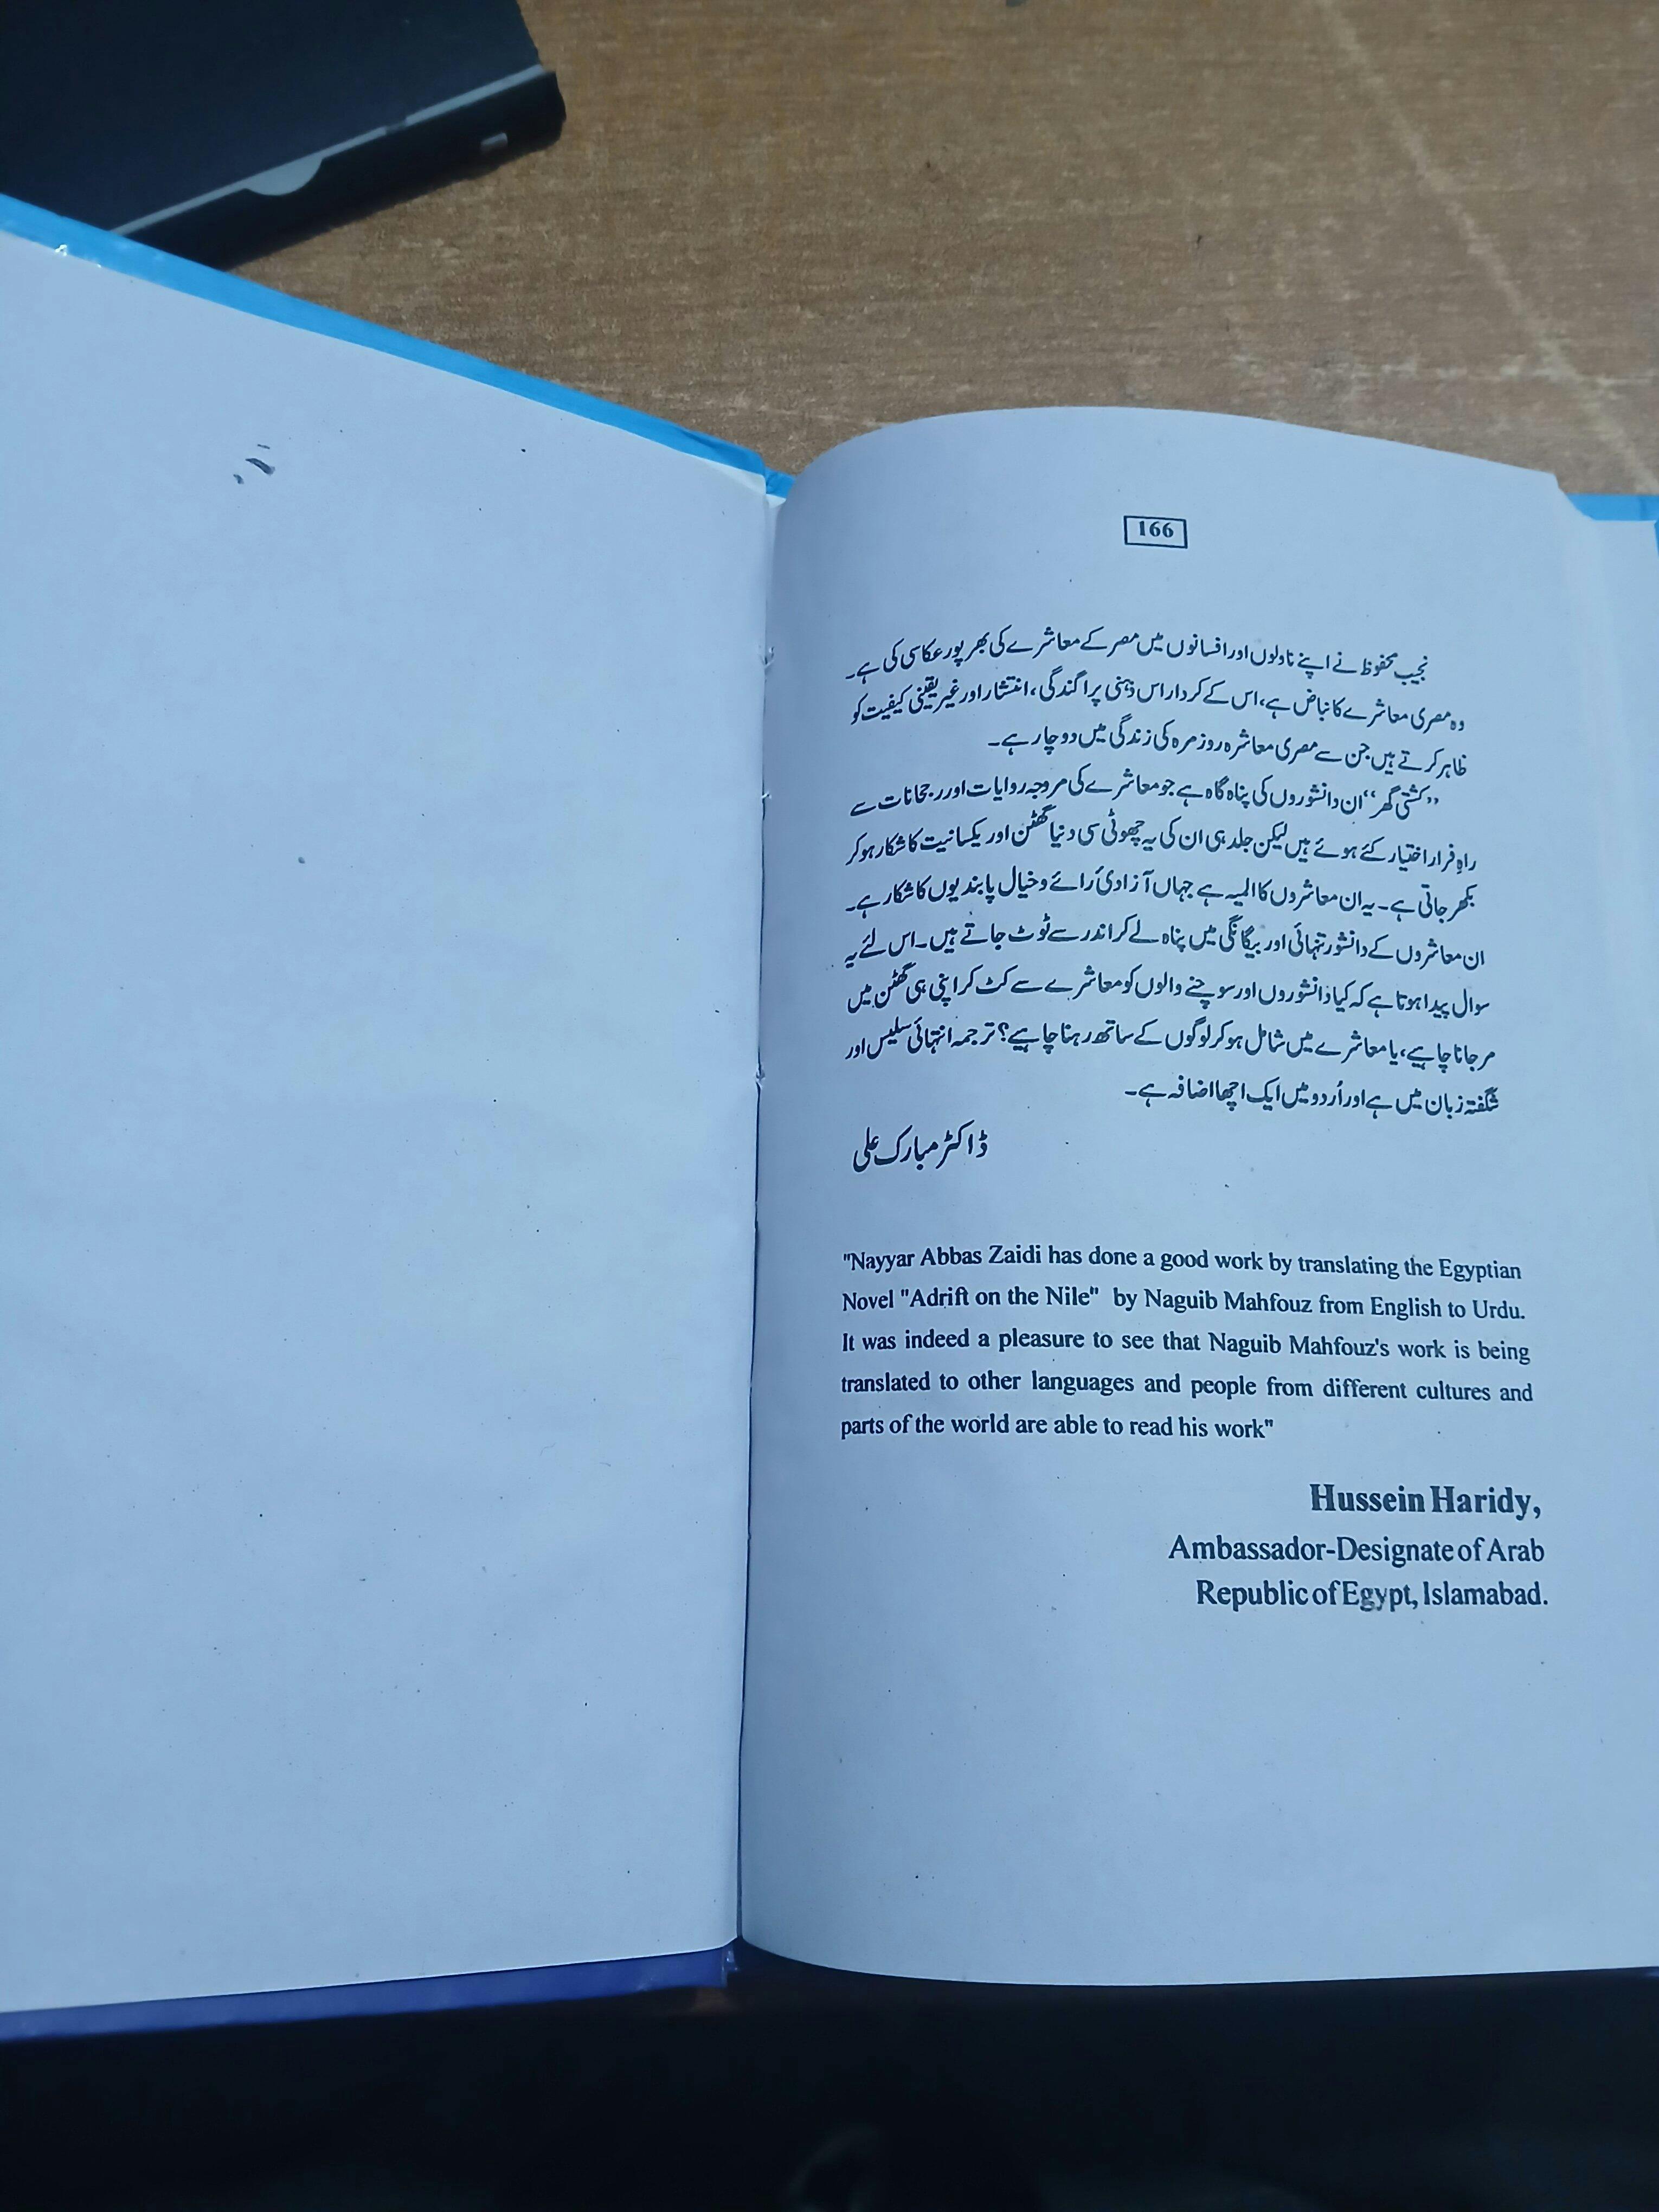 166
نجیب محفوظ نے اپنے ناولوں اور افسانوں میں مصر کے معاشرے کی بھرپور عکاسی کی ہے۔
وہ مصری معاشرے کا نباض ہے، اس کے کردار اس ذہنی پراگندگی، انتشار اور غیر یقینی کیفیت کو
ظاہر کرتے ہیں جن سے مصری معاشرہ روزمرہ کی زندگی میں دوچار ہے۔
”کشتی گھر“ ان دانشوروں کی پناہ گاہ ہے جو معاشرے کی مروجہ روایات اور رجحانات سے
راہِ فرار اختیار کئے ہوئے ہیں لیکن جلد ہی ان کی یہ چھوٹی سی دنیا گھٹن اور یکسانیت کا شکار ہو کر
بکھر جاتی ہے۔ یہ ان معاشروں کا المیہ ہے جہاں آزادیٔ رائے و خیال پابندیوں کا شکار ہے۔
ان معاشروں کے دانشور تنہائی اور بیگانگی میں پناہ لے کر اندر سے ٹوٹ جاتے ہیں۔ اس لئے یہ
سوال پیدا ہوتا ہے کہ کیا دانشوروں اور سوچنے والوں کو معاشرے سے کٹ کر اپنی ہی گھٹن میں
مر جانا چاہیے، یا معاشرے میں شامل ہو کر لوگوں کے ساتھ رہنا چاہیے؟ ترجمہ انتہائی سلیس اور
شگفتہ زبان میں ہے اور اُردو میں ایک اچھا اضافہ ہے۔
ڈاکٹر مبارک علی
"Nayyar Abbas Zaidi has done a good work by translating the Egyptian
Novel "Adrift on the Nile" by Naguib Mahfouz from English to Urdu.
It was indeed a pleasure to see that Naguib Mahfouz's work is being
translated to other languages and people from different cultures and
parts of the world are able to read his work"
Hussein Haridy,
Ambassador-Designate of Arab
Republic of Egypt, Islamabad.